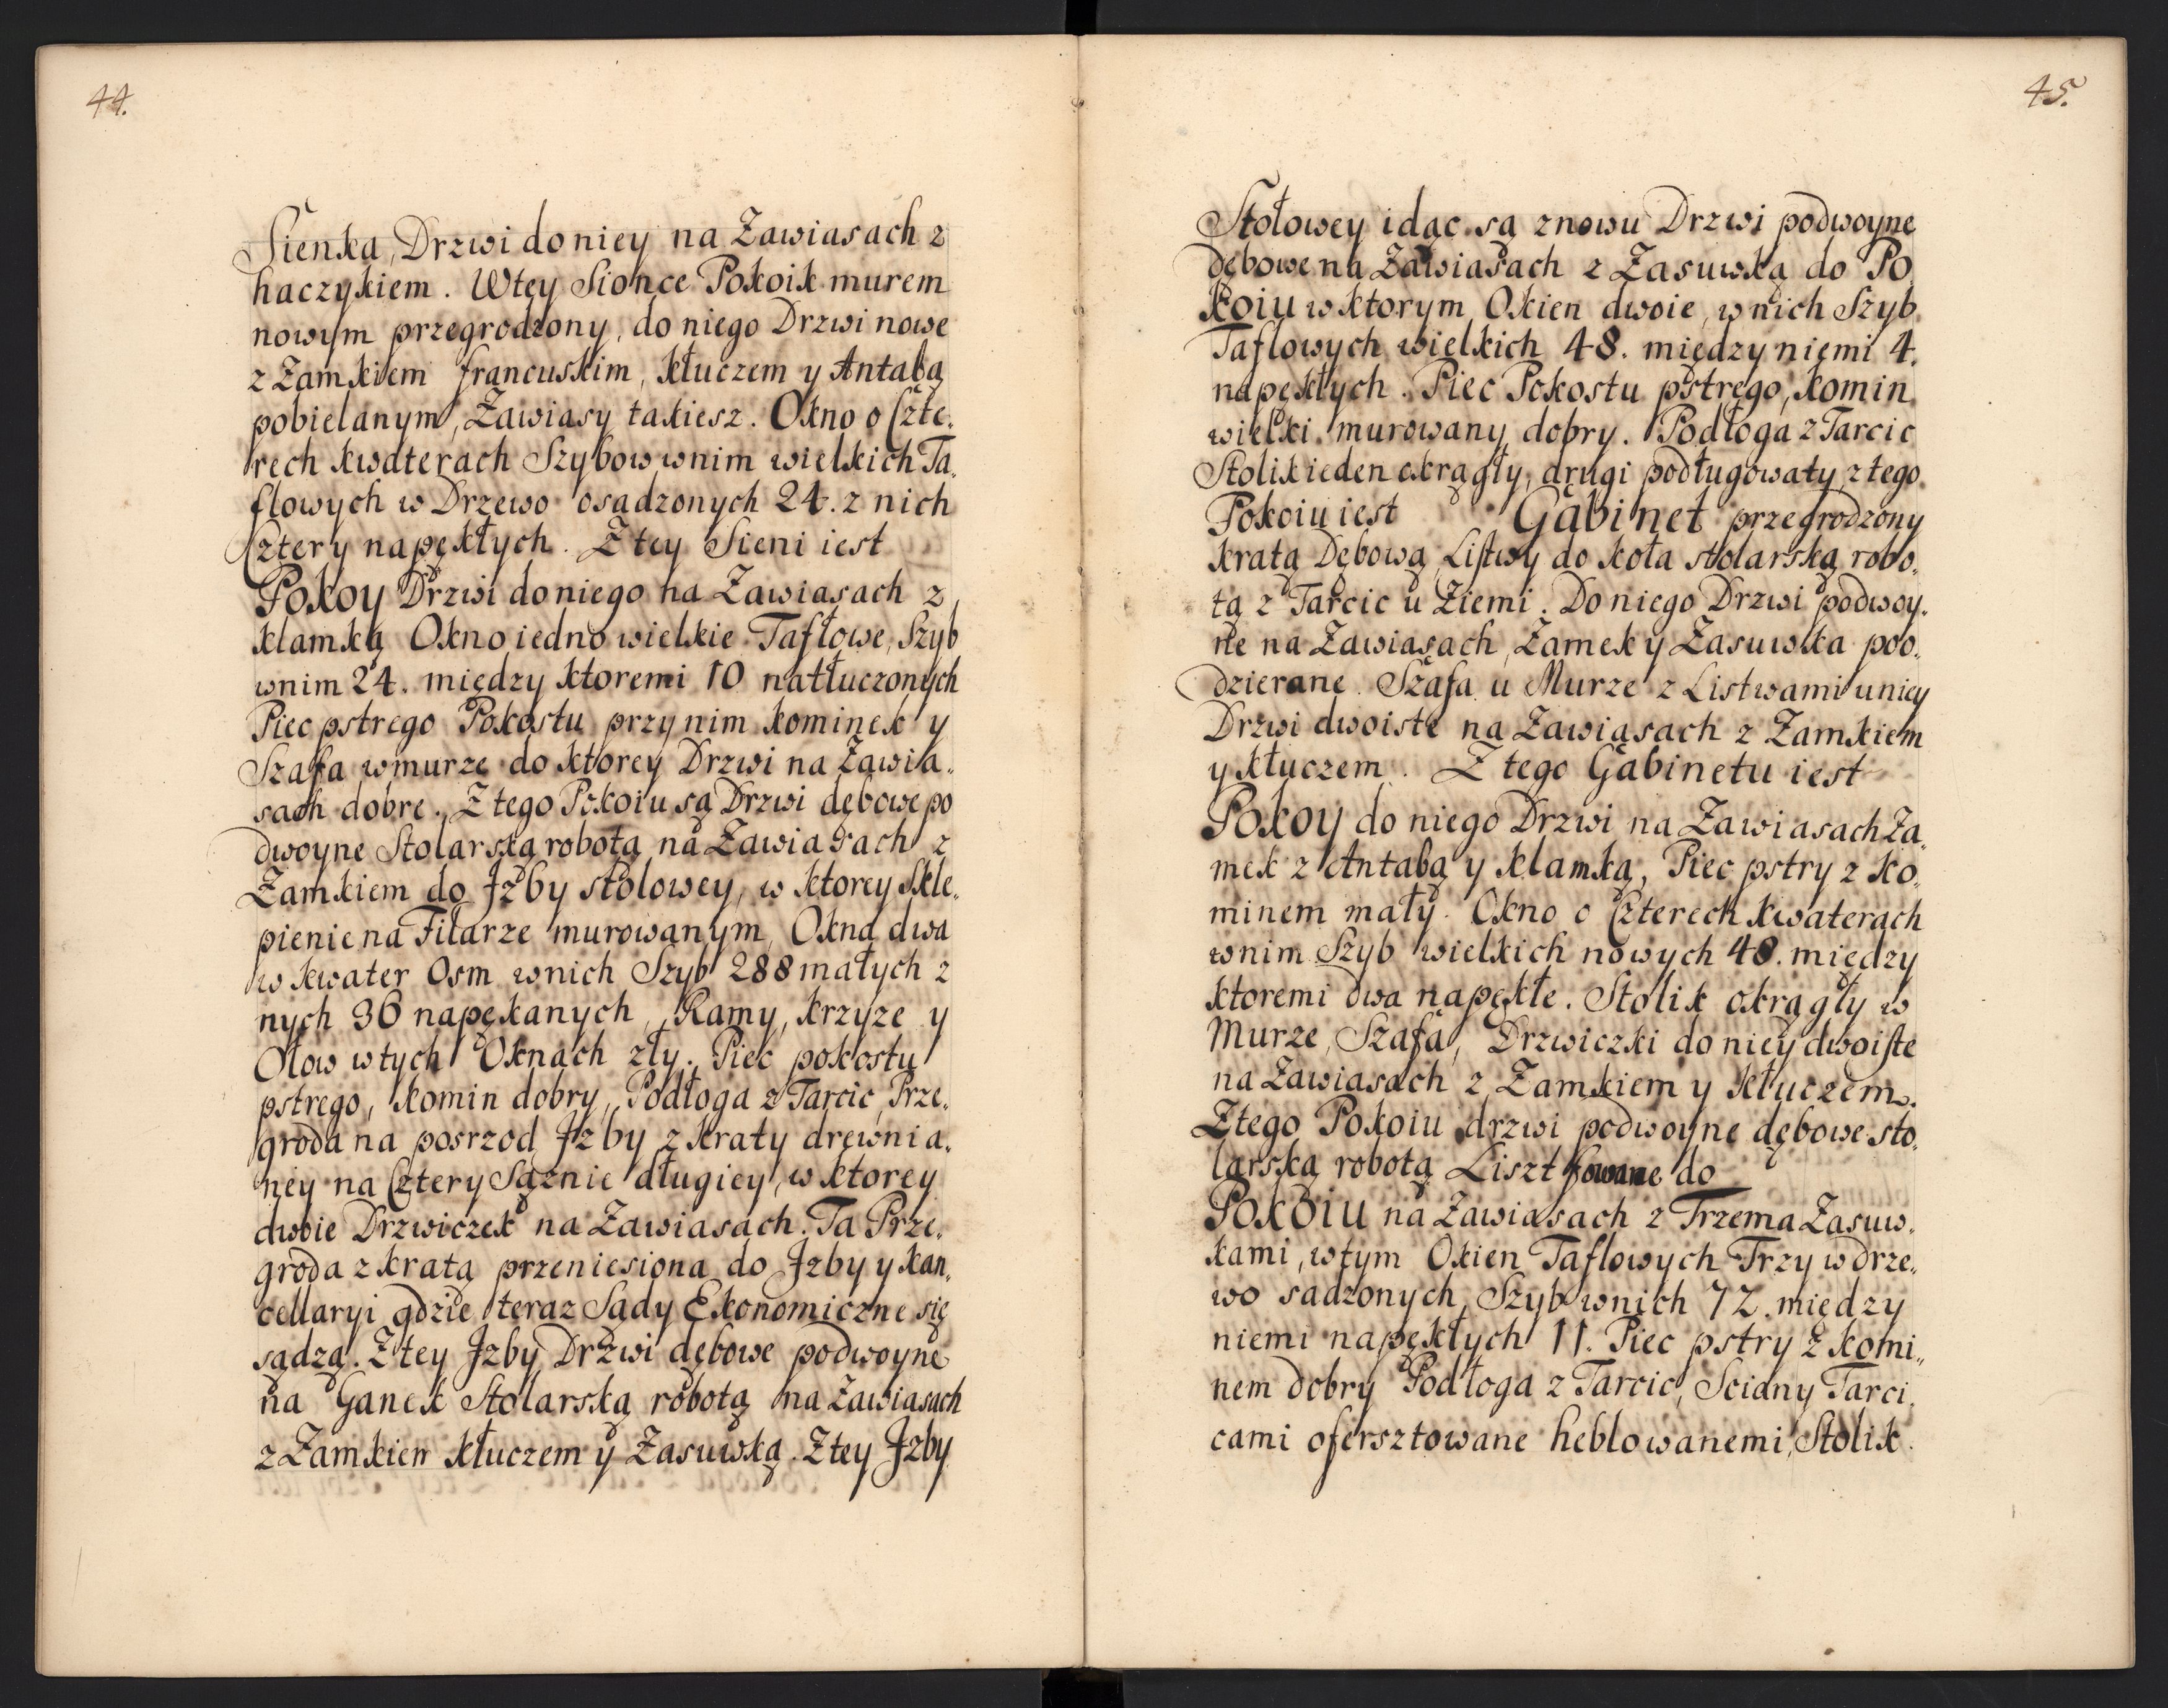 44.
Sienka, Drzwi do niey na Zawiasach z
haczykiem. W tey Sionce Pokoik murem
nowym przegrodzony, do niego Drzwi nowe
z Zamkiem francuskim, kłuczem y Antabą
pobielanym, Zawiasy takiesz. Okno o Czte„
rech kwaterach Szybow wnim wielkich Ta„
flowych w Drzewo osadzonych 24. z nich
Cztery napękłych. Z tey Sieni iest
Pokoy Drzwi do niego na Zawiasach z
klamką Okno iedno wielkie Taflowe, Szyb
wnim 24. między ktoremi 10 natłuczonych
Piec pstrego Pokostu przy nim kominek y
Szafa wmurze do ktorey Drzwi na Zawia„
sach dobre. Z tego Pokoiu są Drzwi dębowe po
dwoyne Stolarską robotą na Zawiasach z
Zamkiem do Jzby stolowey, w ktorey Skle„
pienie na Filarze murowanym, Okna dwa
w kwater Osm wnich Szyb 288 małych z
nych 36 napękanych, Ramy, krzyze y
Ołow wtych Oknach zły. Piec pokostu
pstrego, komin dobry, Podłoga z Tarcic, Prze„
groda na posrzod Jzby z kraty drewnia„
ney na Cztery Sąznie długiey, w ktorey
dwoie Drzwiczek na Zawiasach. Ta Prze„
groda z kratą przeniesiona do Jzby y kan„
cellaryi gdzie teraz Sądy Ekonomiczne się
sądzą. Z tey Jzby Drzwi dębowe podwoyne
na Ganek Stolarską robotą na Zawiasach
z Zamkiem kłuczem y Zasuwką. Z tey Jzby
45.
Stołowey idąc są znowu Drzwi podwoyne
dębowe na Zawiasach z Zasuwką do Po
koiu w ktorym Okien dwoie, wnich Szyb
Taflowych wielkich 48. między niemi 4.
napękłych. Piec Pokostu pstrego, komin
wielki murowany dobry. Podłoga z Tarcic
Stolik ieden okrągły, drugi podługowaty, z tego
Pokoiu iest Gabinet przegrodzony
kratą Dębową Listwy do koła stolarską robo„
tą z Tarcic u Ziemi. Do niego Drzwi podwoy„
ne na Zawiasach, Zamek y Zasuwka poo„
dzierane. Szafa u Murze z Listwami u niey
Drzwi dwoiste na Zawiasach z Zamkiem
y kłuczem. Z tego Gabinetu iest
Pokoy do niego Drzwi na Zawiasach Za„
mek z Antabą y klamką, Piec pstry z ko„
minem mały. Okno o Czterech kwaterach
wnim Szyb wielkich nowych 48. między
ktoremi dwa napękłe. Stolik okrągły w
Murze, Szafa, Drzwiczki do niey dwoiste
na Zawiasach z Zamkiem y kłuczem.
Z tego Pokoiu drzwi podwoyne dębowe sto„
larską robotą Lisztfowane do
Pokoiu na Zawiasach z Trzema Zasuw„
kami, wtym Okien Taflowych Trzy w drze„
wo sadzonych, Szyb wnich 72. między
niemi napękłych 11. Piec pstry z komi„
nem dobry Podłoga z Tarcic, Sciany Tarci„
cami ofersztowane heblowanemi, Stolik